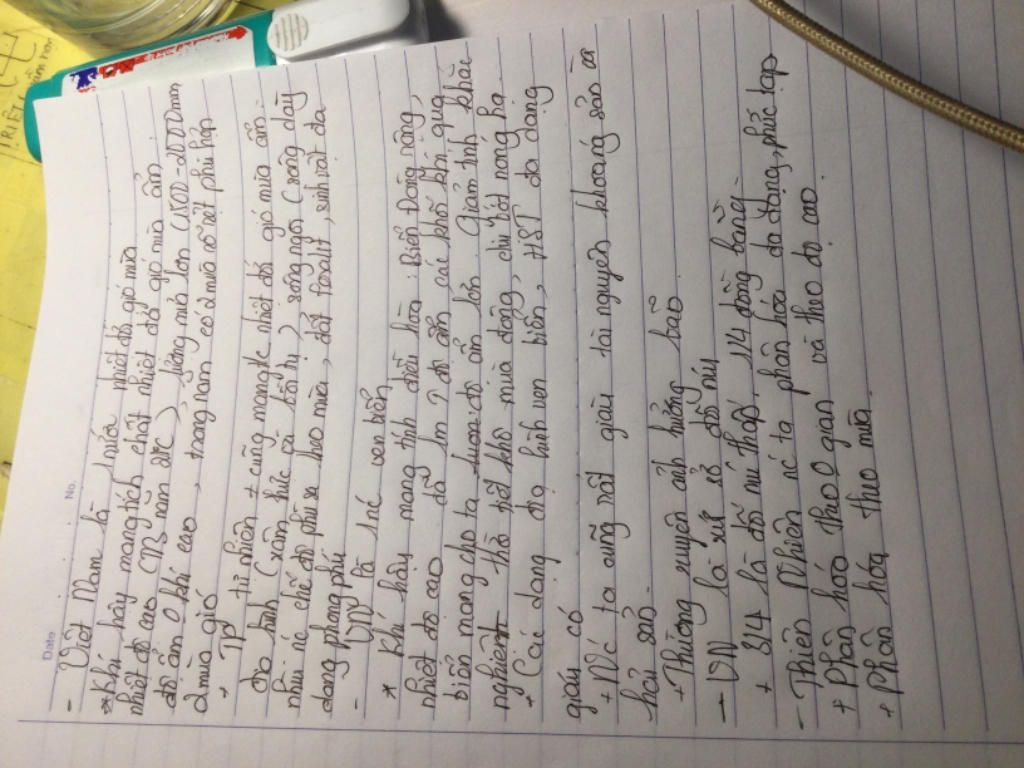 Date No.
- Việt Nam là 1 nước nhiệt đới gió mùa
* Khí hậu mang tính chất nhiệt đới gió mùa ẩm
nhiệt độ cao (TB năm 21°C), lượng mưa lớn (1500-2000mm
độ ẩm 0 khí cao, trong năm có 2 mùa rõ rệt phù hợp
2 mùa gió
+ TP tự nhiên # cũng mang t/c nhiệt đới gió mùa ẩm
địa hình (xâm thực và bồi tụ), sông ngòi (sông dày
nhìu nc chế độ phù sa theo mùa, đất feralit, sinh vật đa
dạng phong phú
- VN là 1 nc ven biển
* Khí hậu mang tính điều hòa. Biển Đông rộng,
nhiệt độ cao độ ẩm các khối khí qua
biển mang cho ta lượng độ ẩm lớn. Giảm tính khắc
nghiệt thời tiết khô mùa đông, dịu bớt nóng hạ
+ Các dạng địa hình ven biển, HST đa dạng
giàu có
+ Nc ta cũng rất giàu tài nguyên khoáng sản và
hải sản.
+ Thường xuyên ảnh hưởng bão
- VN là xứ sở đồi núi
+ 3/4 là đồi núi thấp, 1/4 đồng bằng
- Thiên Nhiên nc ta phân hóa đa dạng, phức tạp
+ Phân hóa theo 0 gian và theo độ cao.
+ Phân hóa theo mùa.
TRIẾT